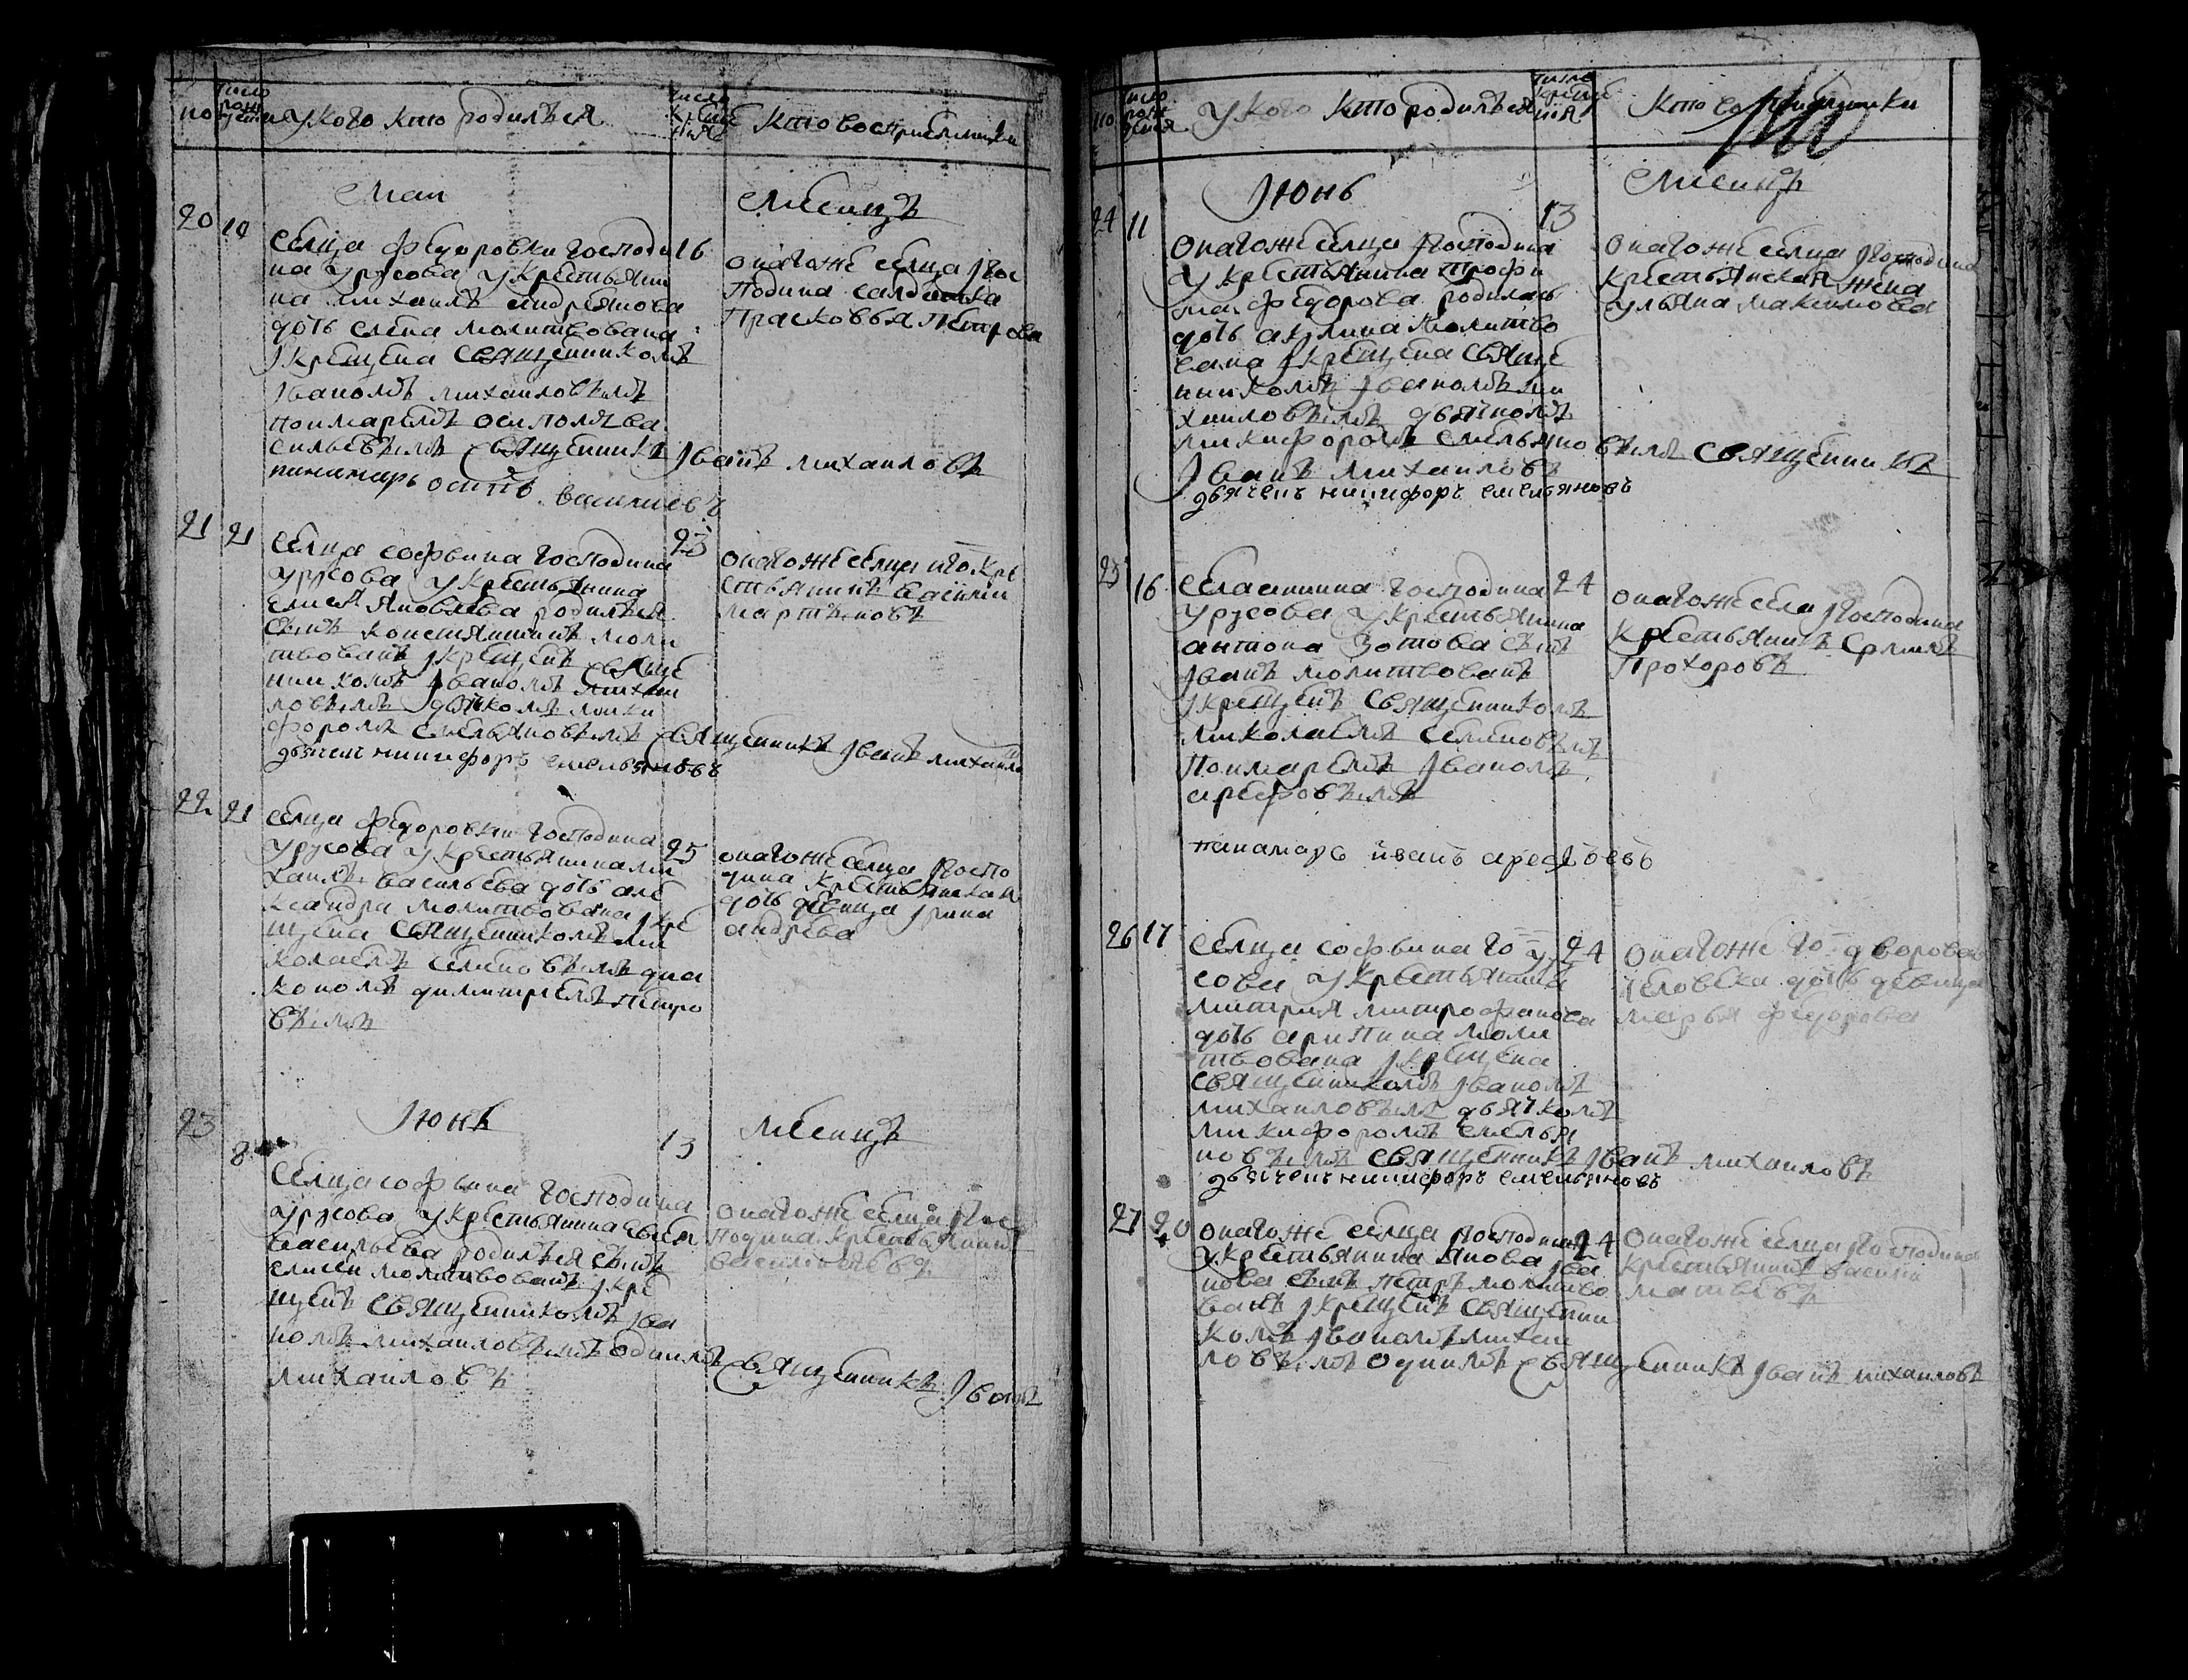 но число рождения у кого кто родился число крещения кто восприемники
Маи месяцъ
20 10
селца федоровки господи 16
на урусова у крестьянина
на михаилѣ андреянова
дочь елена молитвована
Iкрещена священникомъ
Iваномъ михаиловымъ
понмаремъ осипомъ ва
сильевымъ священникъ Iванъ михаиловъ
пинимарь осипъ васильевъ
онагоже селца Iгос
подина салдатка
Прасковья петрова
21 21 23
селца софьина господина
урусова у крестьянина
елисея яковлева родился
сынъ констянтинъ моли
твованъ Iкрещенъ свяще
нникомъ Iваномъ михаи
ловымъ дьячкомъ мики
форомъ емельяновымъ священникъ Iванъ михаило
дьячекъ никифоръ емельяновъ
онагоже селца иго. кре
стьянинъ василии
мартыновъ
22 21
селца федоровки господина
урусова у крестьянина ми 25
хаилы васильева дочь але
ксандра молитвована Iкре
щена священникомъ ни
колаемъ семеновымъ диа
кономъ димитриемъ петро
вымъ
онагоже селца Iгоспо
дина крестьянская
дочь девица Iрина
андрева
23 Iюнь месяцъ
8 13
селца софьина господина
урусова у крестьянина евсея
васильева родился сынъ
елисеи молитвованъ Iкре
щенъ священникомъ Iва
номъ михаиловымъ одинмъ священникъ Iванъ
михаиловъ
онагоже селца Iгос
подина крестьянинъ
василии
но число рождения у кого кто родился число крещения кто восприемники
Iюнь месяцъ
24 11 13
онагоже селца Iгосподина
у крестьянина трофи
ма федорова родилась
дочь акулина молитво
вана Iкрещена свяще
нникомъ Iваномъ ми
хаиловымъ дьячкомъ
микифоромъ емельяновымъ священникъ
Iванъ михаиловъ
дьячекъ никифоръ емельяновъ
онагоже селца Iгосподина
крестьянская жена
ульяна макимова
25 16 24
села господина
урусова у крестьянина
антона Зотова сынъ
Iванъ молитвованъ
Iкрещенъ священникомъ
миколаемъ семеновымъ
Понмаремъ Iваномъ
арефовымъ
панамарь иванъ арефьевъ
онагоже села Iгосподина
крестьянинъ Ермилъ
Прохоровъ
26 17 24
селца софьина го у
сова у крестьянина
митрия митрофанова
дочь арипина моли
твована Iкрещена
священникомъ Iваномъ
михаиловымъ дьячкомъ
микифоромъ емелья
новымъ священникъ Iванъ михаиловъ
дьячекъ никифоръ емельяновъ
онагоже го дворова
человека дочь девица
марья федорова
27 20 24
онагоже селца Iгосподина
у крестьянина якова Iва
нова сынъ петръ молитво
ванъ Iкрещенъ священни
комъ Iваномъ михаи
ловымъ одинмъ священникъ Iванъ михаиловъ
онагоже селца Iгосподина
крестьянинъ васили
матвевъ